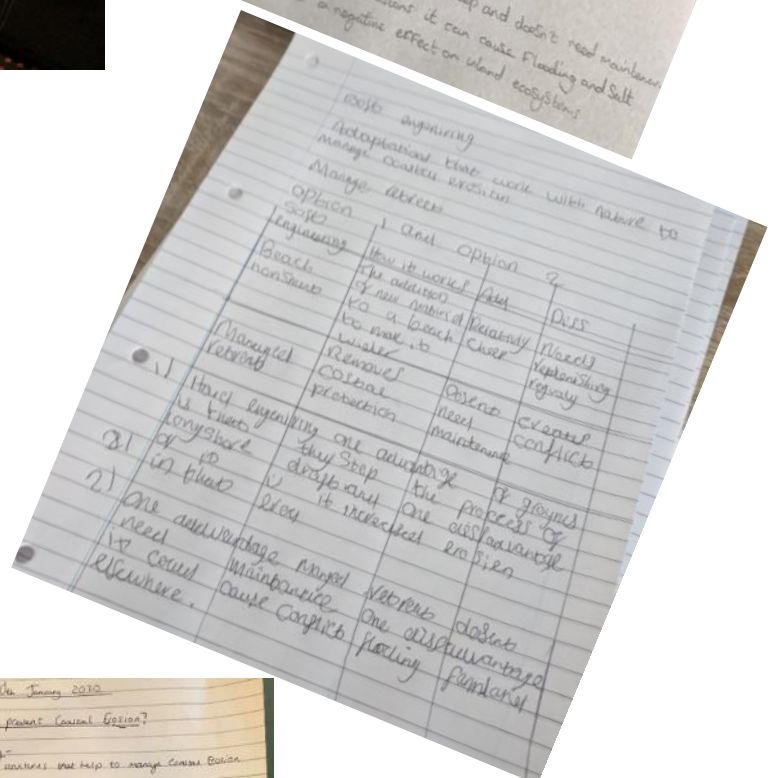 and doesn't need maintenen
it can cause Flooding and Salt
a negative effect on inland ecosystems
Soft enginring
Adaptations that work with nature to
manage coastly erosion
Manage retreat
option 1 and option 2
Soft
engineering
How it works
Adv
Diss
Beach
The addition
of new
to a beach
to make it
wider
cheep
Needs
replenishing
Managed
retreat
Removes
costal
protection
Dosent
need
maintenence
creates
conflict
1) Hard enginring one advantage of groynes
is that they stop the process of
longshore drift and one disadvantage
of is it increased erosion
in that
2) One addvantage manged retreat dosent
need maintanence One dissadvantage
it could cause conflict flooding farmland
elsewhere.
January 2020
prevent Coastal Erosion?
that help to manage Coastal Erosion